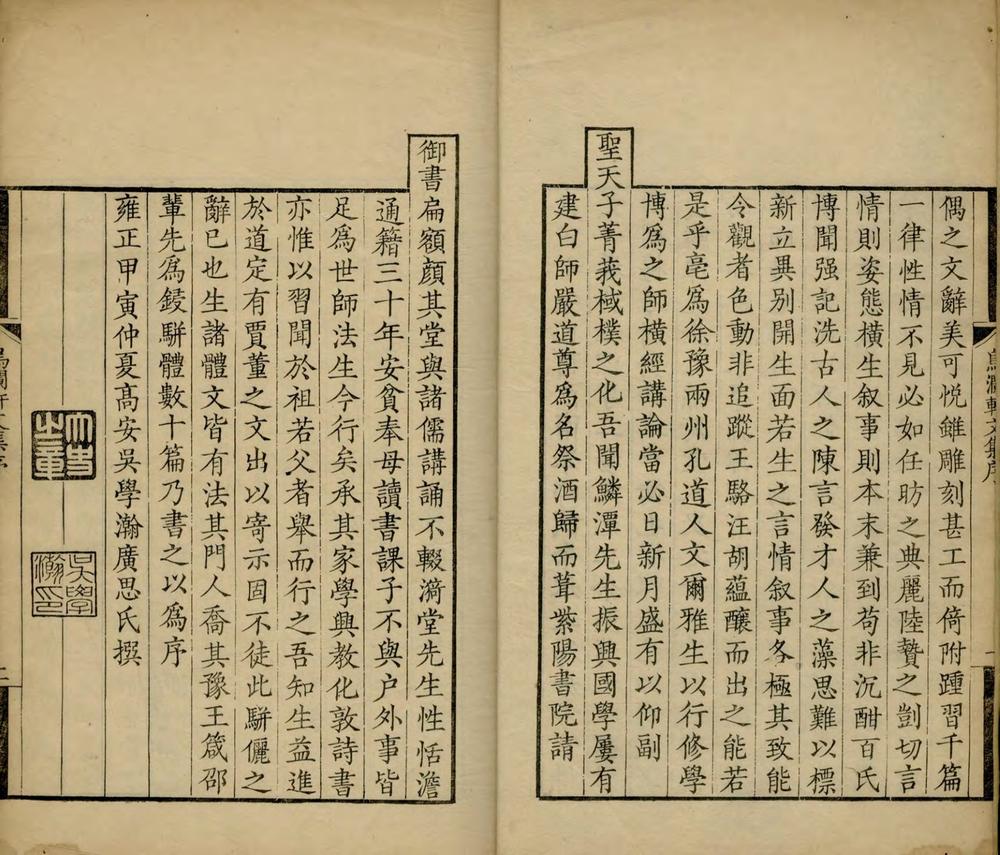 偶之文辭美可悅雖雕刻甚工而倚附踵習千篇
一律性情不見必如任昉之典麗陸贄之剴切言
情則姿態橫生叙事則本末兼到苟非沉酣百氏
博聞强記洗古人之陳言發才人之藻思難以標
新立異別開生面若生之言情叙事各極其致能
令觀者色動非追蹤王駱汪胡蘊釀而出之能若
是乎亳爲徐豫兩州孔道人文爾雅生以行修學
博爲之師橫經講論當必日新月盛有以仰副
聖天子菁莪棫樸之化吾聞鱗潭先生振興國學屢有
建白師嚴道尊爲名祭酒歸而葺紫陽書院請
御書扁額顏其堂與諸儒講誦不輟漪堂先生性恬澹
通籍三十年安貧奉母讀書課子不與户外事皆
足爲世師法生今行矣承其家學興教化敦詩書
亦惟以習聞於祖若父者舉而行之吾知生益進
於道定有賈董之文出以寄示固不徒此駢儷之
辭已也生諸體文皆有法其門人喬其豫王箴邵
輩先爲鋟駢體數十篇乃書之以爲序
雍正甲寅仲夏高安吳學瀚廣思氏撰
太史之章
吳學瀚印
瀾軒文集序
一